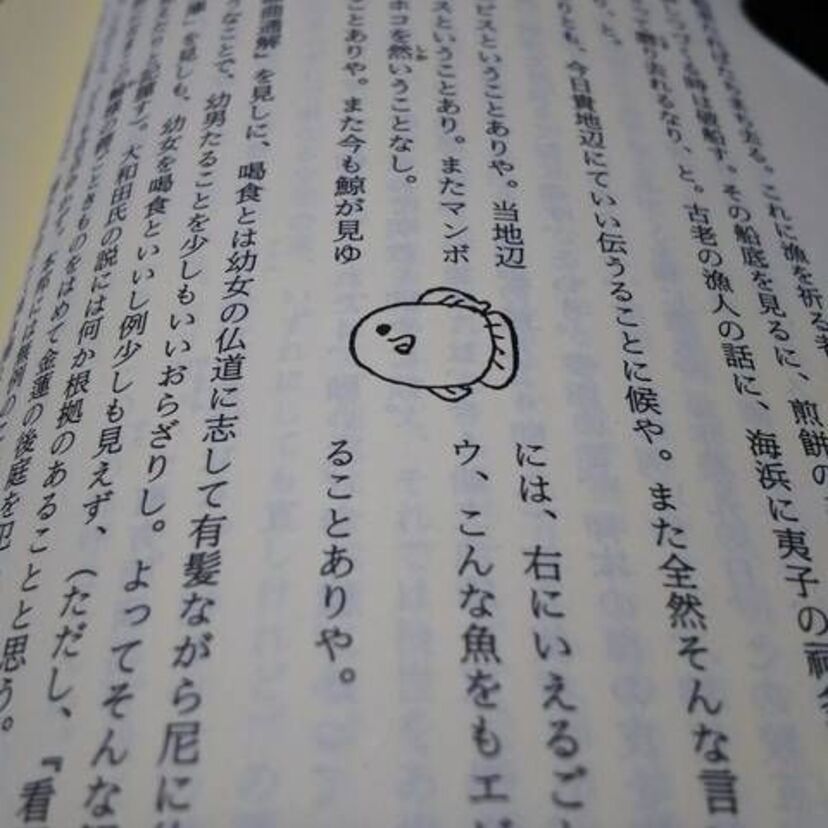 ればたちまち去る。これに漁を祈る者
る時は破船す。その船底を見るに、煎餅の
れるなり、と。古老の漁人の話に、海浜に夷子の
り、と。
りとも、今日貴地辺にていい伝うることに候や。また全然そんな言
ビスということありや。当地辺には、右にいえるご
スということあり。またマンボウ、こんな魚をもエ
ホコを然いうことなし。
ことありや。また今も鯨が見ゆることありや。
通解』を見しに、喝食とは幼女の仏道に志して有髪ながら尼に
うなことで、幼男たることを少しもいいおらざりし。よってそんな
』を見しも、幼女を喝食といいし例少しも見えず、（ただし、『看
記憶す）。大和田氏の説には何か根拠のあることと思う。
ごときものをはめて金蓮の後庭を犯